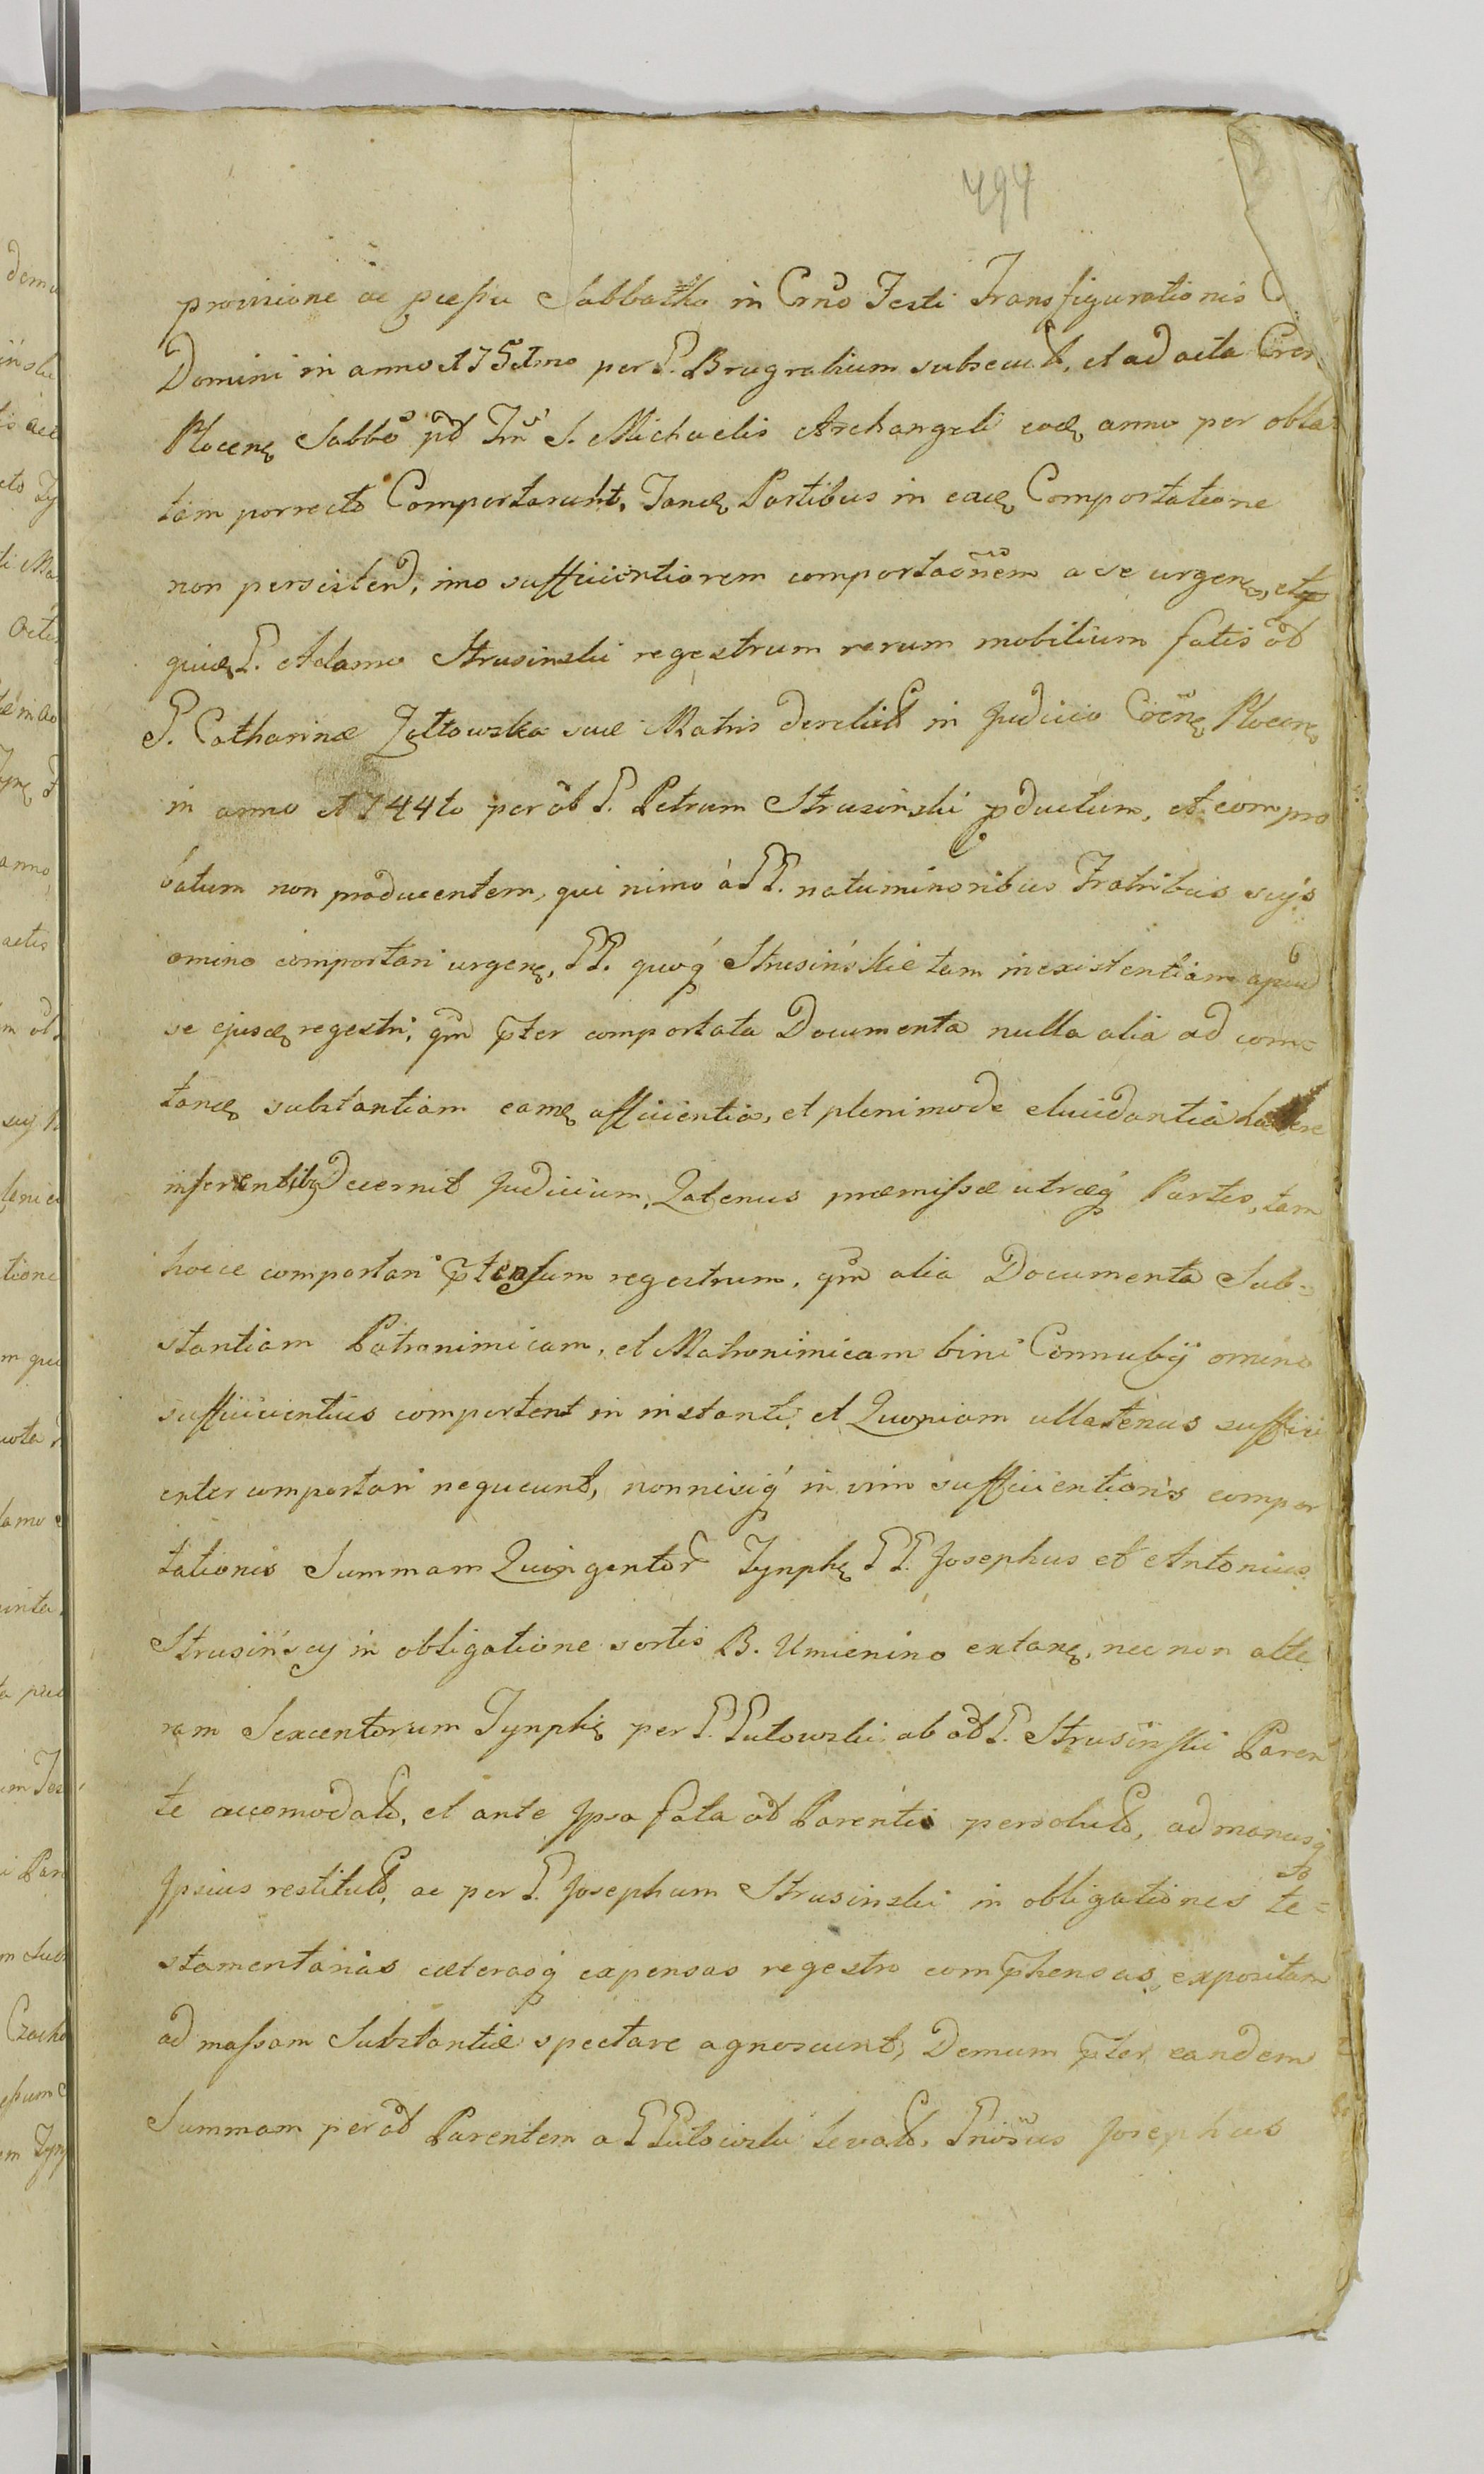 494
provisione ac præssu Sabbatho in Crno Festi Transfigurationis
Domini in anno 1751mo per P. Brugralium subsecut, et ad acta Cren
Plocenẽ Sabbo pd Frũ S. Michaelis Archangeli eodẽ anno per obla
tam porrecto Comportarunt, Tandẽ Partibus in eadẽ Comportatione
non persistend, imo sufficientiorem comportaõnem a se urgenẽ, et
quidẽ P. Adamo Strusinski regestrum rerum mobilium fatis õd
P. Catharinæ Zoltowska suæ Matris derelict in Judicio Crenẽ Plocenẽ
in anno 1744to per õd P. Petrum Strusinski pductum, et compro
batum non producentem, qui nimo á PP. natuminoribus Fratribus suÿs
omino comportari urgenẽ, PP. quoq́ Strusińskie tam inexistentiam apud
se ejusdẽ regestri, qm pter comportata Documenta nulla alia ad com=
tandẽ substantiam eamdẽ afficientia, et plenimode elucidantia habere
inferentibq Decernit Judicium, Qatenus præmissæ utræq́ Partes, tam
hocce comportari ptensum regestrum, qm alia Documenta Sub=
stantiam Patronimicam, et Matronimicam bini Connubÿ omino
sufficicientius comportent in instanti, et Quoniam ullatenus suffici
enter comportari nequeunt, nonnisiq́ in vim sufficientioris compor
tationis Summam Quingentor Tynphẽ PP. Josephus et Antonius
Strusińscy in obligatione sortis B. Umienino extanẽ, nec non alte
ram Sexcentorum Tynphẽ per P. Putowski ab õd P. Strusiński Paren
te accomodat, et ante Ipsa fata õd Parentis persolut, ad manusq́
Ipsius restitut, ac per P. Josephum Strusinski in obligationes te=
stamentarias cæterasq́ expensas regestro comphensas, expositam
ad massam Substantiæ spectare agnoscunt, Demum pter eandem
Summam per õd Parentem a P Putowski levat, Pnosus Josephus